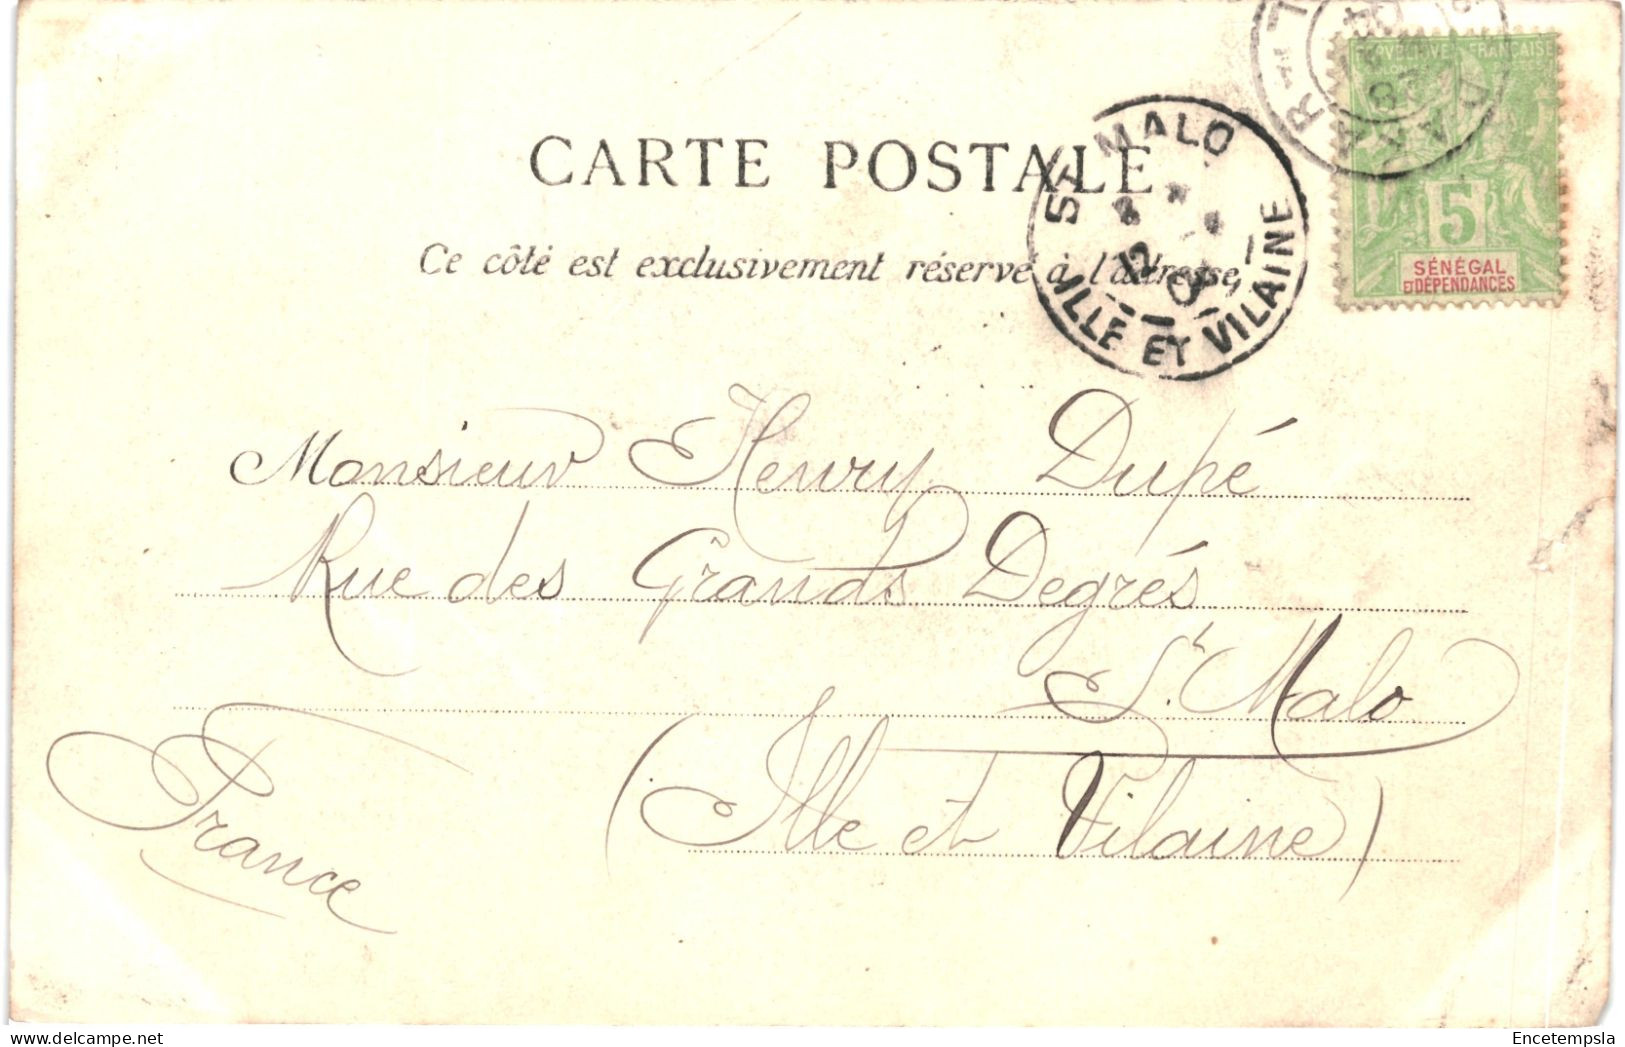 CARTE POSTALE
Ce côté est exclusivement réservé à l'adresse
RÉPUBLIQUE FRANÇAISE
5
SÉNÉGAL
ET DÉPENDANCES
ST MALO
ILLE ET VILAINE
Monsieur Henry Dupé
Rue des Grands Degrés
St Malo
(Ille et Vilaine)
France
Delcampe.net
Encetempsla